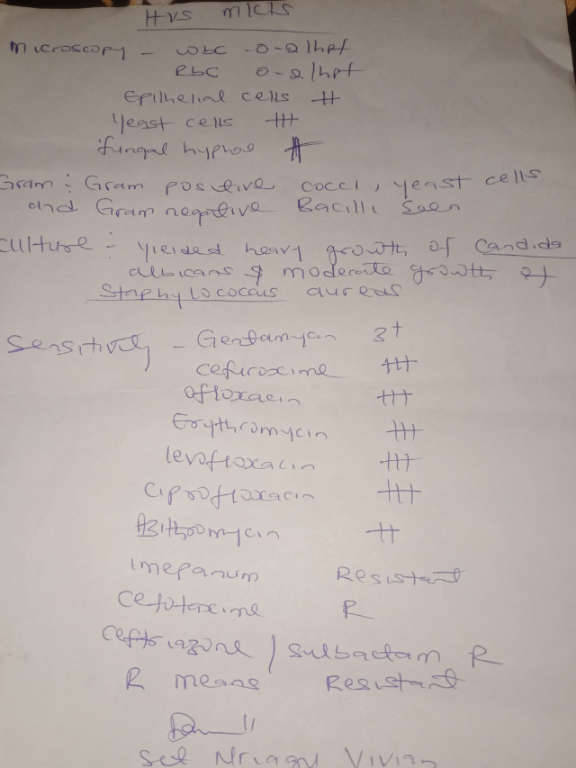 HVS M/C/S
Microscopy - WBC - 0-2/hpf
RBC 0-2/hpf
Epithelial cells ++
Yeast cells +++
fungal hyphae #
Gram : Gram positive cocci, yeast cells
and Gram negative Bacilli seen
Culture :- yielded heavy growth of Candida
albicans & moderate growth of
Staphylococcus aureus
Sensitivity - Gentamycin 3+
cefuroxime +++
ofloxacin +++
Erythromycin +++
levofloxacin +++
ciprofloxacin +++
Azithromycin ++
imepanum Resistant
Cefotaxime R
ceftriazone / sulbactam R
R means Resistant
Set Nriagu Vivian